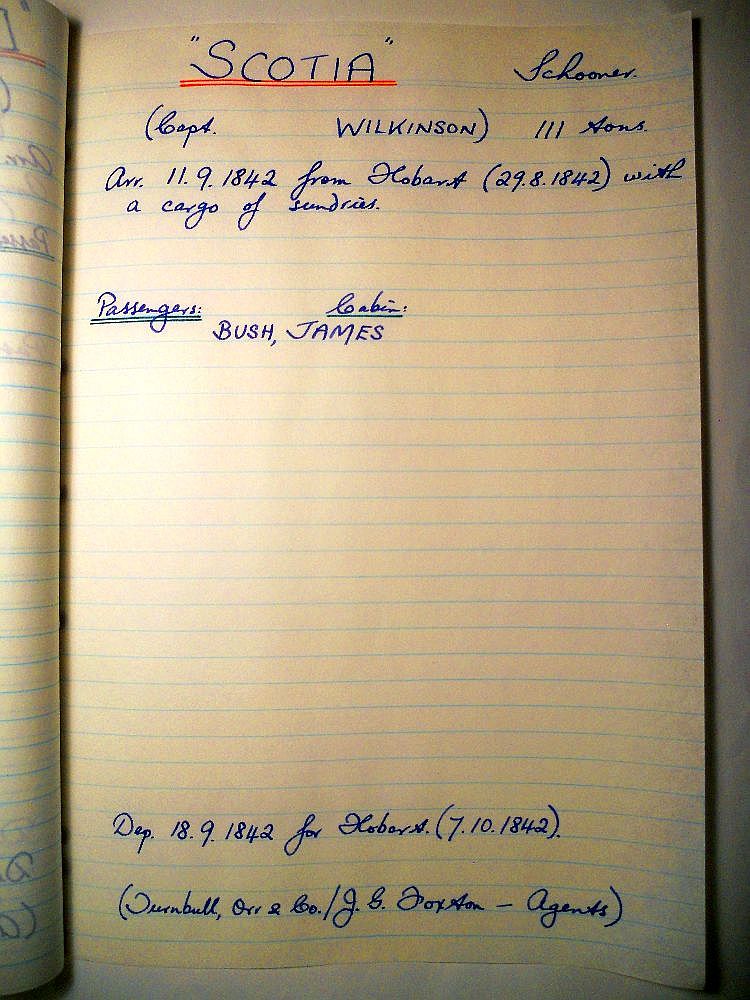 "SCOTIA" Schooner.
(Capt. WILKINSON) 111 tons.
Arr. 11.9.1842 from Hobart (29.8.1842) with
a cargo of sundries.
Passengers: Cabin:
BUSH, JAMES
Dep. 18.9.1842 for Hobart. (7.10.1842).
(Turnbull, Orr & Co./J. G. Foxton - Agents)